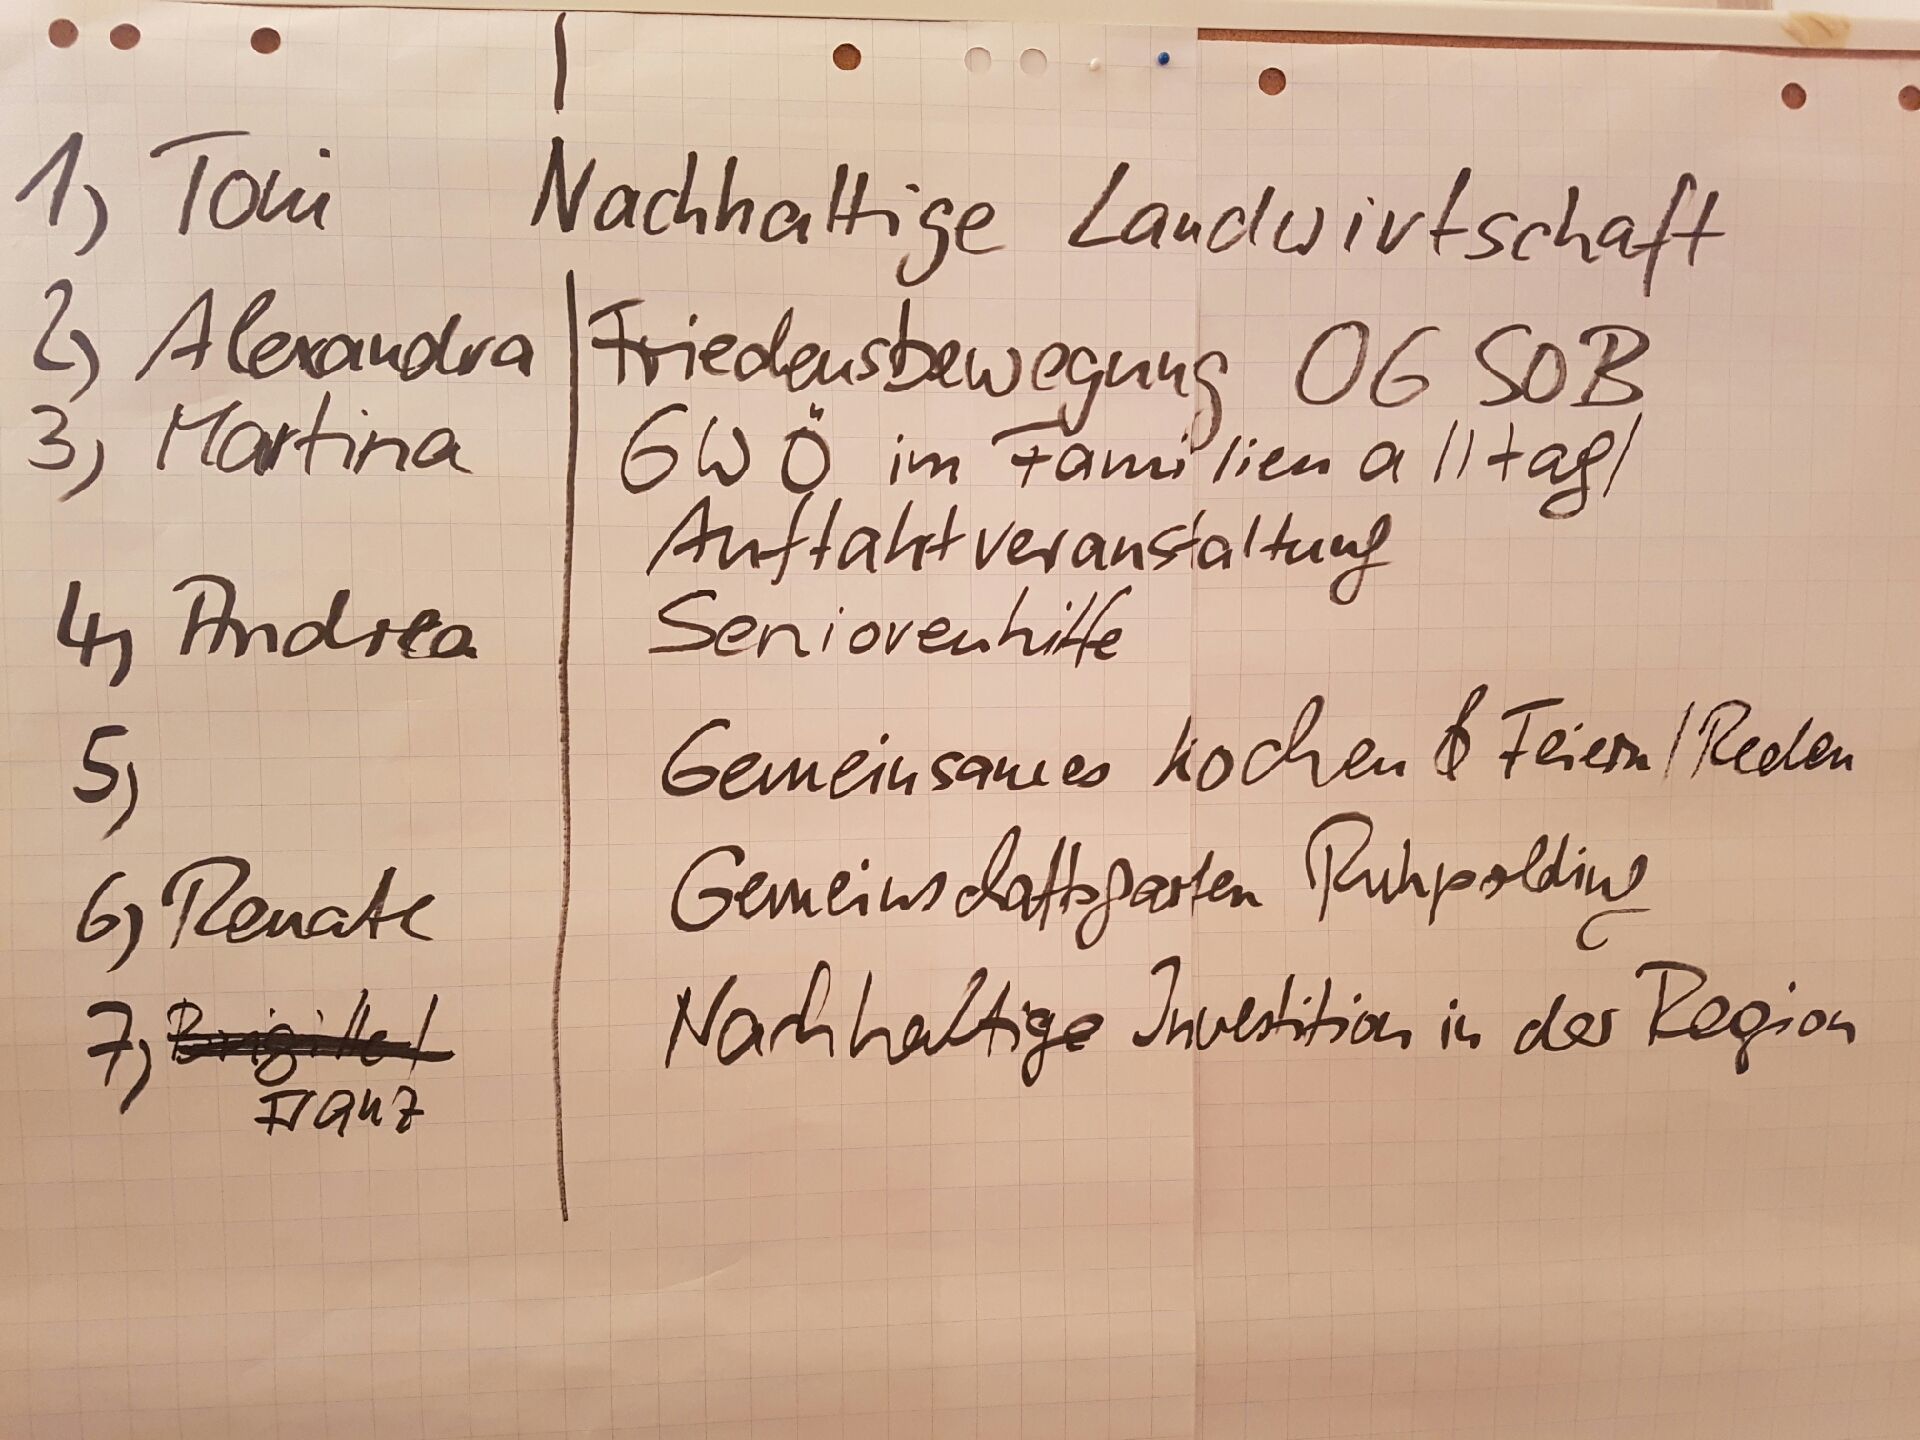 1, Toni Nachhaltige Landwirtschaft
2, Alexandra Friedensbewegung OG SOB
3, Martina GWÖ im Familienalltag/
Auftaktveranstaltung
4, Andrea Seniorenhilfe
5, Gemeinsames kochen & Feiern/Reden
6, Renate Gemeinschaftsgarten Ruhpolding
7, Brigitte/ Nachhaltige Investition in der Region
Franz